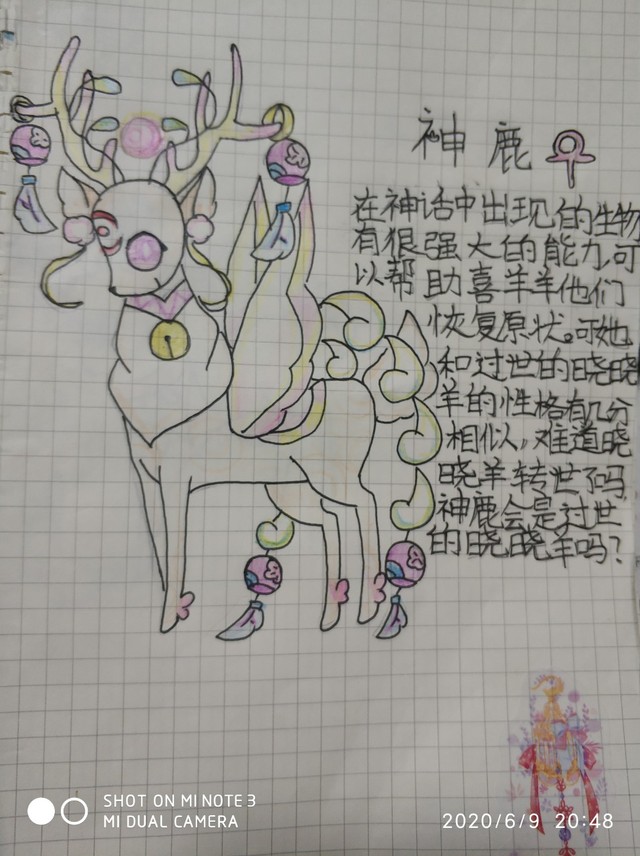 神鹿
在神话中出现的生物
有很强大的能力,可
以帮助喜羊羊他们
恢复原状。可她
和过世的晓晓
羊的性格有几分
相似,难道晓
晓羊转世了吗
神鹿会是过世
的晓晓羊吗?
SHOT ON MI NOTE 3
MI DUAL CAMERA
2020/6/9 20:48